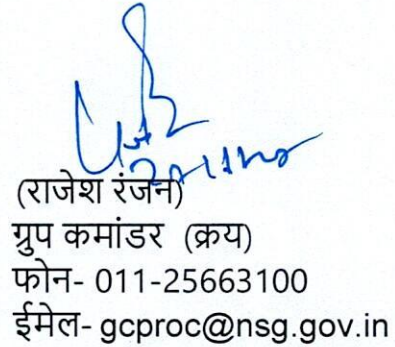 (राजेश रंजन)
ग्रुप कमांडर (क्रय)
फोन- 011-25663100
ईमेल- gcproc@nsg.gov.in